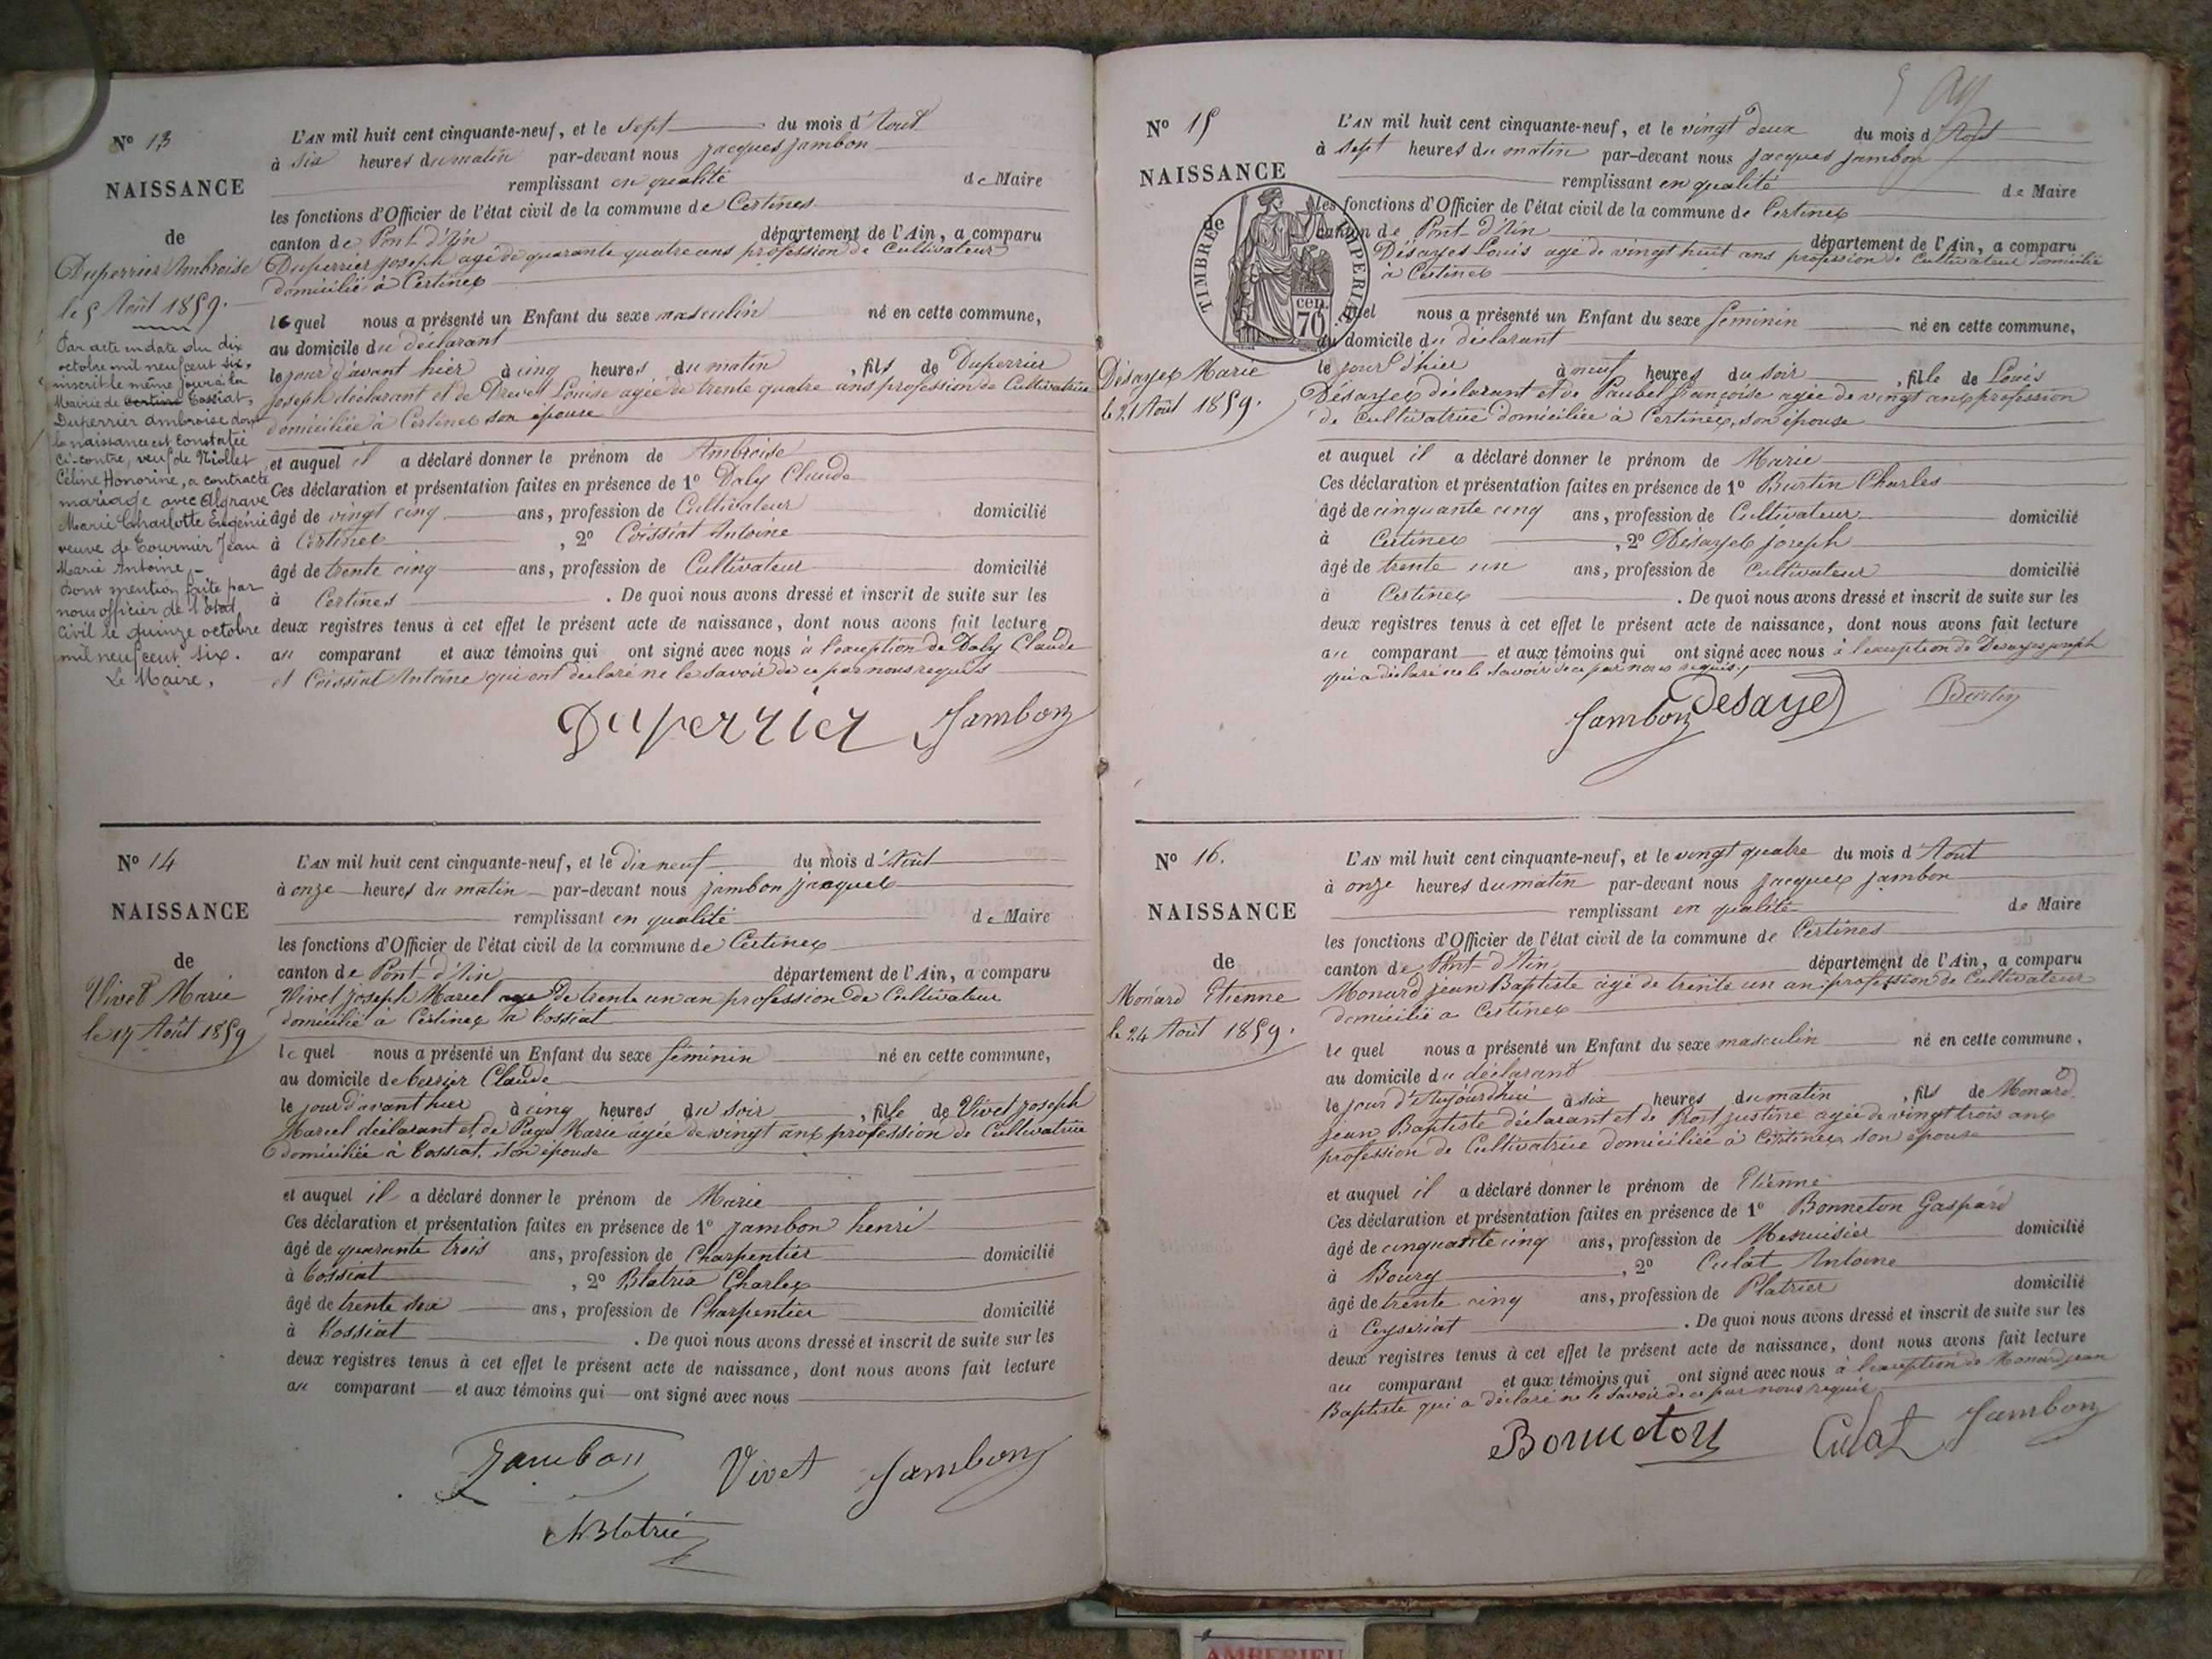 Nº 13
NAISSANCE
de
Duperrier Ambroise
le 5 Août 1859.
Par acte en date du dix
octobre mil neuf cent six,
inscrit le même jour à la
Mairie de Certine Tossiat,
Duperrier Ambroise dont
la naissance est constatée
ci-contre, veuf de Niollet
Céline Honorine, a contracté
mariage avec Algrave
Marie Charlotte Eugénie
veuve de Tournier Jean
Marie Antoine. -
Dont mention faite par
nous officier de l'état
civil le quinze octobre
mil neuf cent six.
Le Maire,
L'AN mil huit cent cinquante-neuf, et le sept du mois d'Aout
à six heures du matin par-devant nous jacques jambon
remplissant en qualité de Maire
les fonctions d'Officier de l'état civil de la commune de Certines
canton de Pont-d'Ain département de l'Ain, a comparu
Duperrier joseph agé de quarante quatre ans profession de Cultivateur
domicilié à Certines
lequel nous a présenté un Enfant du sexe masculin né en cette commune,
au domicile du déclarant
le jour d'avant hier à cinq heures du matin, fils de Duperrier
joseph déclarant et de Drevet Louise agée de trente quatre ans profession de Cultivatrice
domiciliée à Certines son épouse
et auquel il a déclaré donner le prénom de Ambroise
Ces déclaration et présentation faites en présence de 1º Daly Claude
âgé de vingt cinq ans, profession de Cultivateur domicilié
à Certines, 2º Coissiat Antoine
âgé de trente cinq ans, profession de Cultivateur domicilié
à Certines. De quoi nous avons dressé et inscrit de suite sur les
deux registres tenus à cet effet le présent acte de naissance, dont nous avons fait lecture
au comparant et aux témoins qui ont signé avec nous à l'exception de Daly Claude
et Coissiat Antoine qui ont déclaré ne le savoir de ce par nous requis
Duperrier Jambon
Nº 14
NAISSANCE
de
Vivet Marie
le 17 Août 1859
L'AN mil huit cent cinquante-neuf, et le dix neuf du mois d'Aout
à onze heures du matin par-devant nous jambon jacques
remplissant en qualité de Maire
les fonctions d'Officier de l'état civil de la commune de Certines
canton de Pont-d'Ain département de l'Ain, a comparu
Vivet joseph Marcel agé de trente un an profession de Cultivateur
domicilié à Certines Tossiat
lequel nous a présenté un Enfant du sexe féminin né en cette commune,
au domicile de Claude
le jour d'avant hier à cinq heures du soir, fille de Vivet joseph
Marcel déclarant et de Page Marie agée de vingt ans profession de Cultivatrice
domiciliée à Tossiat son épouse
et auquel il a déclaré donner le prénom de Marie
Ces déclaration et présentation faites en présence de 1º jambon henri
âgé de quarante trois ans, profession de Charpentier domicilié
à Tossiat, 2º Blatrix Charles
âgé de trente ans, profession de Charpentier domicilié
à Tossiat. De quoi nous avons dressé et inscrit de suite sur les
deux registres tenus à cet effet le présent acte de naissance, dont nous avons fait lecture
au comparant et aux témoins qui ont signé avec nous
Jambon Vivet Jambon
Blatrix
Nº 15
NAISSANCE
de
TIMBRE IMPERIAL
70 cen.
Désayes Marie
le 21 Août 1859.
L'AN mil huit cent cinquante-neuf, et le vingt deux du mois d'Aout
à sept heures du matin par-devant nous jacques jambon
remplissant en qualité de Maire
les fonctions d'Officier de l'état civil de la commune de Certines
canton de Pont d'Ain département de l'Ain, a comparu
Désayes Louis agé de vingt huit ans profession de Cultivateur domicilié
à Certines
lequel nous a présenté un Enfant du sexe féminin né en cette commune,
au domicile du déclarant
le jour d'hier à neuf heures du soir, fille de Louis
Désayes déclarant et de Paubel françoise agée de vingt ans profession
de Cultivatrice domiciliée à Certines, son épouse
et auquel il a déclaré donner le prénom de Marie
Ces déclaration et présentation faites en présence de 1º Burtin Charles
âgé de cinquante cinq ans, profession de Cultivateur domicilié
à Certines, 2º Désayes joseph
âgé de trente un ans, profession de Cultivateur domicilié
à Certines. De quoi nous avons dressé et inscrit de suite sur les
deux registres tenus à cet effet le présent acte de naissance, dont nous avons fait lecture
au comparant et aux témoins qui ont signé avec nous à l'exception de Desayes joseph
qui a déclaré ne le savoir de ce par nous requis.
Jambon Desayes Burtin
Nº 16.
NAISSANCE
de
Monard Etienne
le 24 Août 1859.
L'AN mil huit cent cinquante-neuf, et le vingt quatre du mois d'Aout
à onze heures du matin par-devant nous jacques jambon
remplissant en qualité de Maire
les fonctions d'Officier de l'état civil de la commune de Certines
canton de Pont-d'Ain département de l'Ain, a comparu
Monard jean Baptiste agé de trente un an profession de Cultivateur
domicilié a Certines
lequel nous a présenté un Enfant du sexe masculin né en cette commune,
au domicile du déclarant
le jour d'Aujourd'hui à six heures du matin, fils de Monard
jean Baptiste déclarant et de justine agée de vingt trois ans
profession de Cultivatrice domiciliée à Certines son épouse
et auquel il a déclaré donner le prénom de Etienne
Ces déclaration et présentation faites en présence de 1º Bonneton Gaspard
âgé de cinquante cinq ans, profession de Menuisier domicilié
à Bourg, 2º Culat Antoine
âgé de trente cinq ans, profession de Platrier domicilié
à Ceyseriat. De quoi nous avons dressé et inscrit de suite sur les
deux registres tenus à cet effet le présent acte de naissance, dont nous avons fait lecture
au comparant et aux témoins qui ont signé avec nous à l'exception de Monard jean
Baptiste qui a déclaré ne le savoir de ce par nous requis
Bonneton Culat Jambon
AMBERIEU